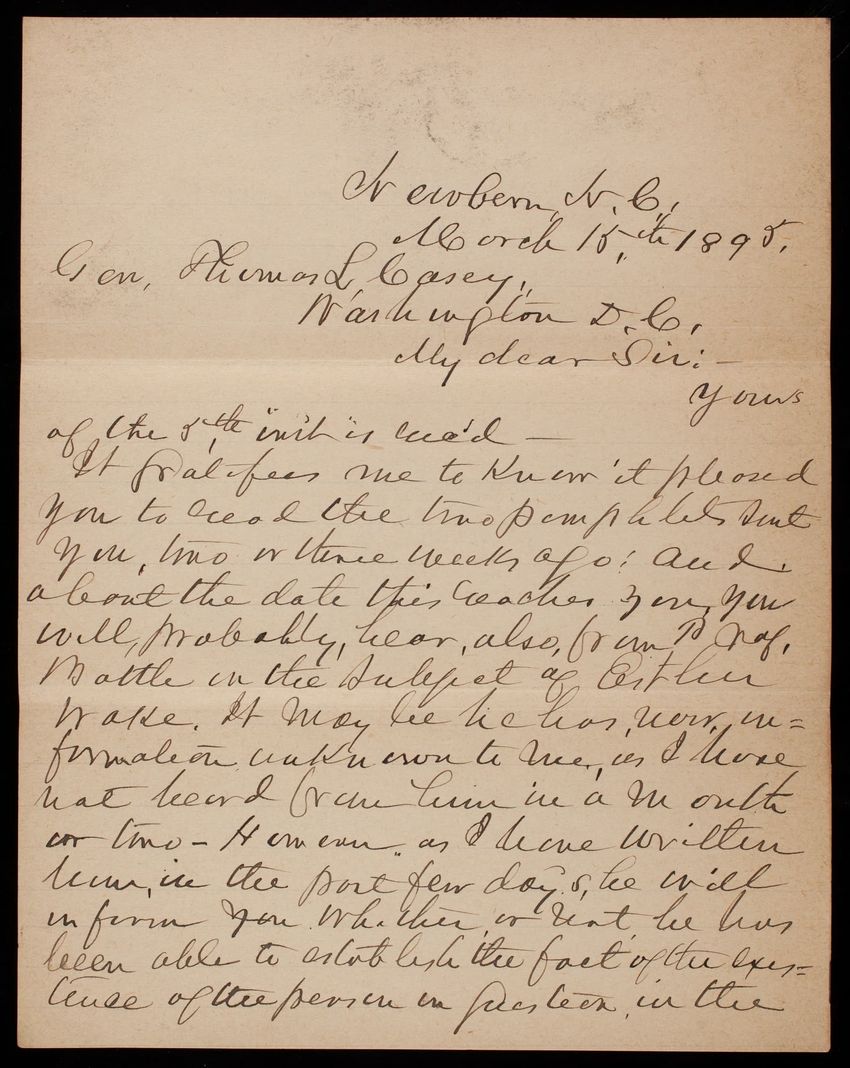 Newbern, N. C.,
March 15,th 1895.
Gen, Thomas L, Casey,
Washington D. C.
My dear Sir:—
Yours
of the 5,th inst is rec'd —
It gratifees me to Know it pleased
you to read the two pamphlets sent
you, two or three weeks ago; and,
about the date this reaches you, you
will, probably, hear, also, from Prof.
Battle on the subject of Esther
Wake. It may be he has, now, in=
formation unknown to me, as I have
not heard from him in a month
or two – However, as I have written
him, in the past few days, he will
inform you whether, or not, he has
been able to establish the fact of the exis=
tence of the person in question, in the